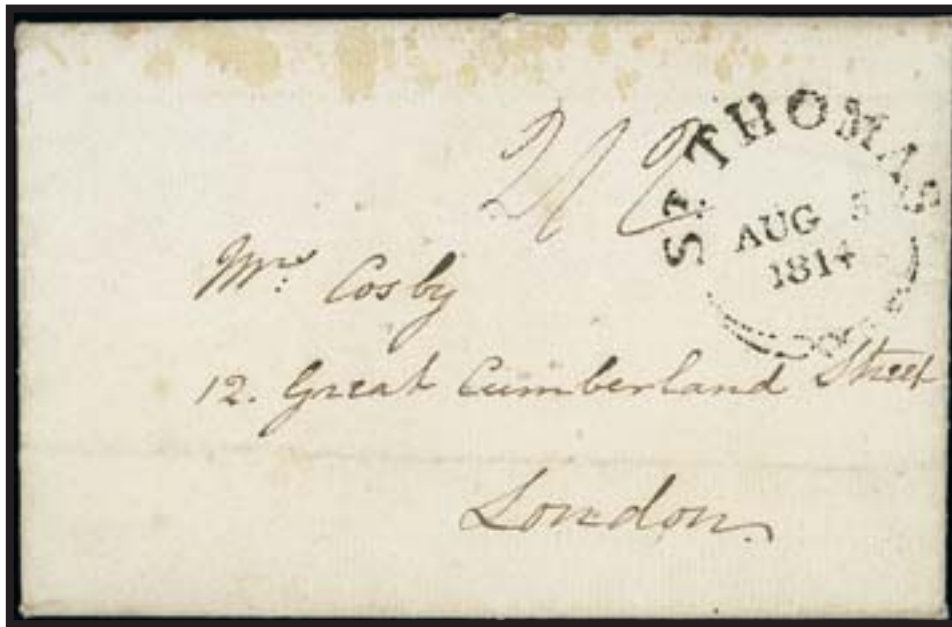 ST. THOMAS
AUG 5
1814
Mrs. Cosby
12. Great Cumberland Street
London.